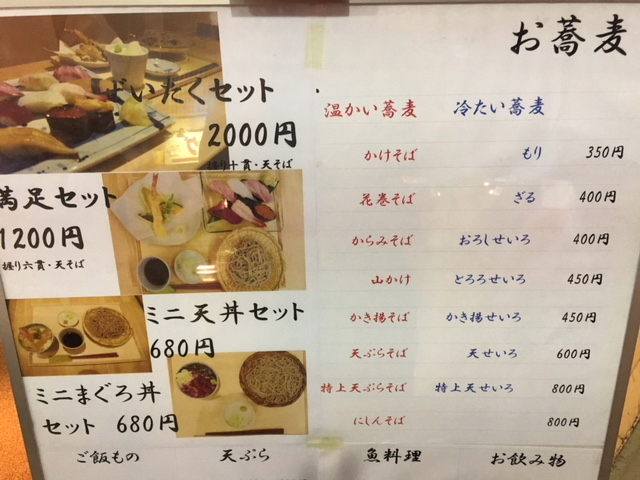 ぜいたくセット
2000円
握り十貫・天そば
満足セット
1200円
握り六貫・天そば
ミニ天丼セット
680円
ミニまぐろ丼
セット 680円
お蕎麦
温かい蕎麦 冷たい蕎麦
かけそば もり 350円
花巻そば ざる 400円
からみそば おろしせいろ 400円
山かけ とろろせいろ 450円
かき揚そば かき揚せいろ 450円
天ぷらそば 天せいろ 600円
特上天ぷらそば 特上天せいろ 800円
にしんそば 800円
ご飯もの 天ぷら 魚料理 お飲み物